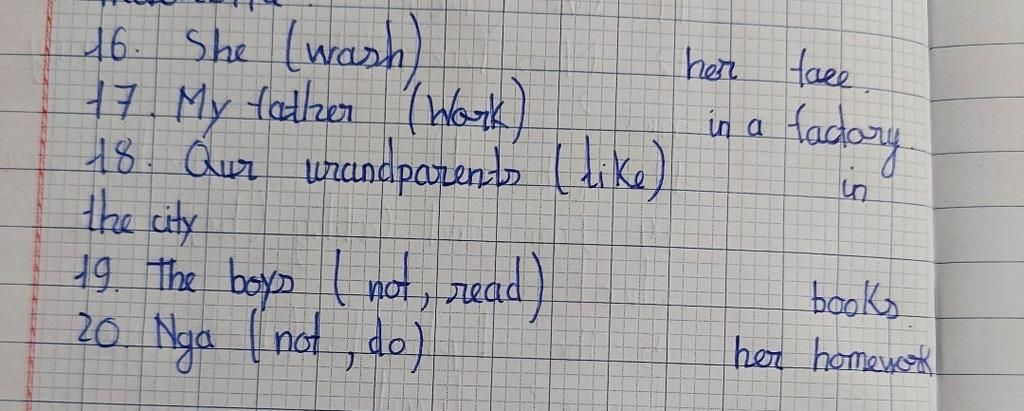 16. She (wash) her face.
17. My father (work) in a factory.
18. Our grandparents (like) in
the city
19. The boys (not, read) books.
20. Nga (not, do) her homework